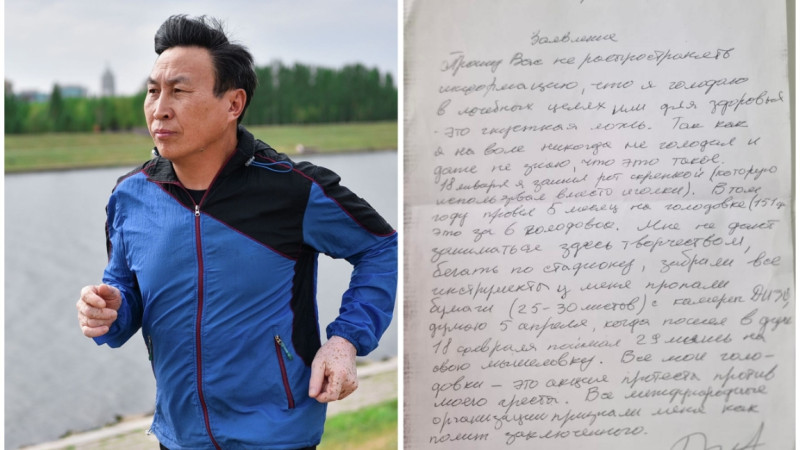 Заявление
Прошу Вас не распространять
информацию, что я голодаю
в лечебных целях или для здоровья
- это гнусная ложь. Так как
я на воле никогда не голодал и
даже не знаю, что это такое.
18 января я зашил рот скрепкой (которую
использовал вместо иголки). В том
году провел 5 месяц на голодовке (151
это за 8 голодовок. Мне не дают
заниматься здесь творчеством,
бегать по стадиону, забрали все
инструменты у меня пропали
бумаги (25-30 листов) с камеры
думаю 5 апреля, когда пошел в душ
18 февраля поймал 29 мышь на
свою мышеловку. Все мои голо-
довки - это акция протеста против
моего ареста. Все международные
организации признали меня как
полит заключенного.